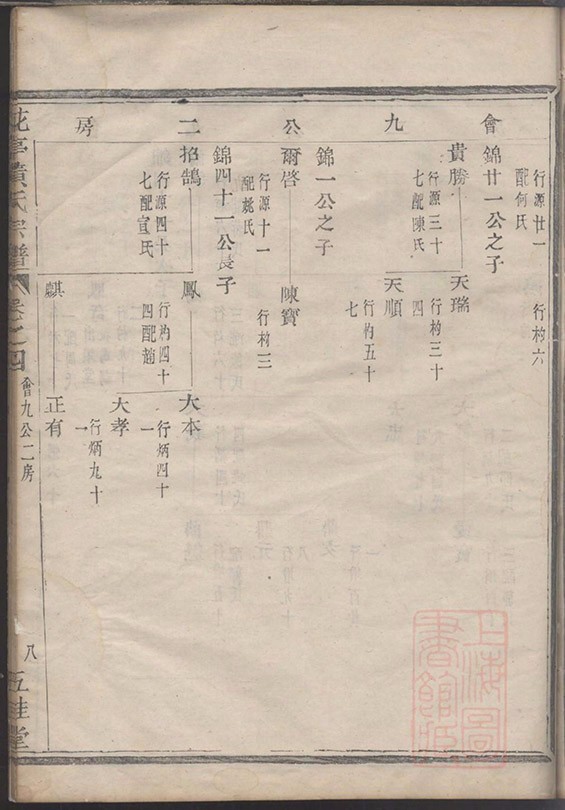 會九公二房
行源廿一
配何氏
行杓六
錦廿一公之子
貴勝
行源三十
七配陳氏
天瑞
行杓三十
四
天順
行杓五十
七
錦一公之子
爾啓
行源十一
配姚氏
陳寶
行杓三
錦四十一公長子
招鵠
行源四十
七配宣氏
鳳
行杓四十
四配趙
大本
行炳四十
一
大孝
行炳九十
一
麒
正有
花亭黃氏宗譜
卷之四
會九公二房
八
五桂堂
上海圖書館藏